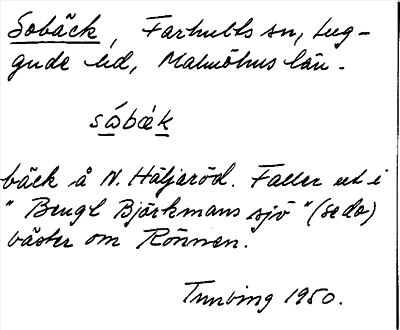 Sobäck, Farhults sn, Lug-
gude hd, Malmöhus län.
bäck å N. Häljaröd. Faller ut i
"Bengt Björkmans sjö" (se do)
väster om Rönnen.
1950.